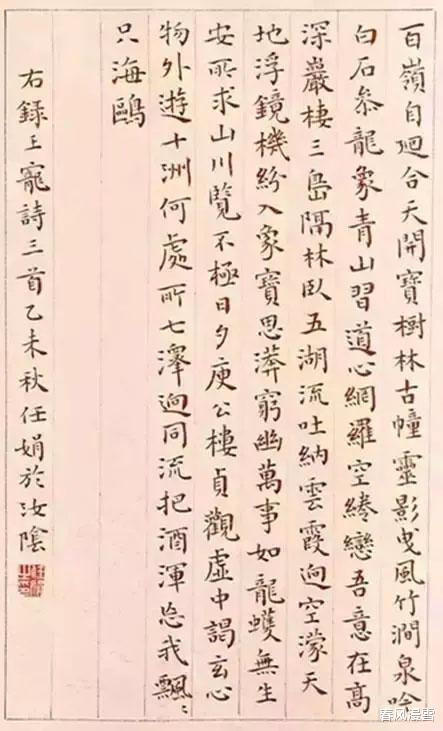 百嶺自廻合天開寶樹林古幢靈影曳風竹澗泉吟
白石叅龍象青山習道心網羅空綣戀吾意在高
深巖棲三島隔林臥五湖流吐納雲霞逈空濛天
地浮鏡機紛入象寶思漭窮幽萬事如龍蠖無生
安所求山川覽不極日夕庾公樓貞觀虛中謁玄心
物外遊十洲何處所七澤逈同流把酒渾忘我飄〻
只海鷗
右録王寵詩三首乙未秋任娟於汝陰
春风漫雪